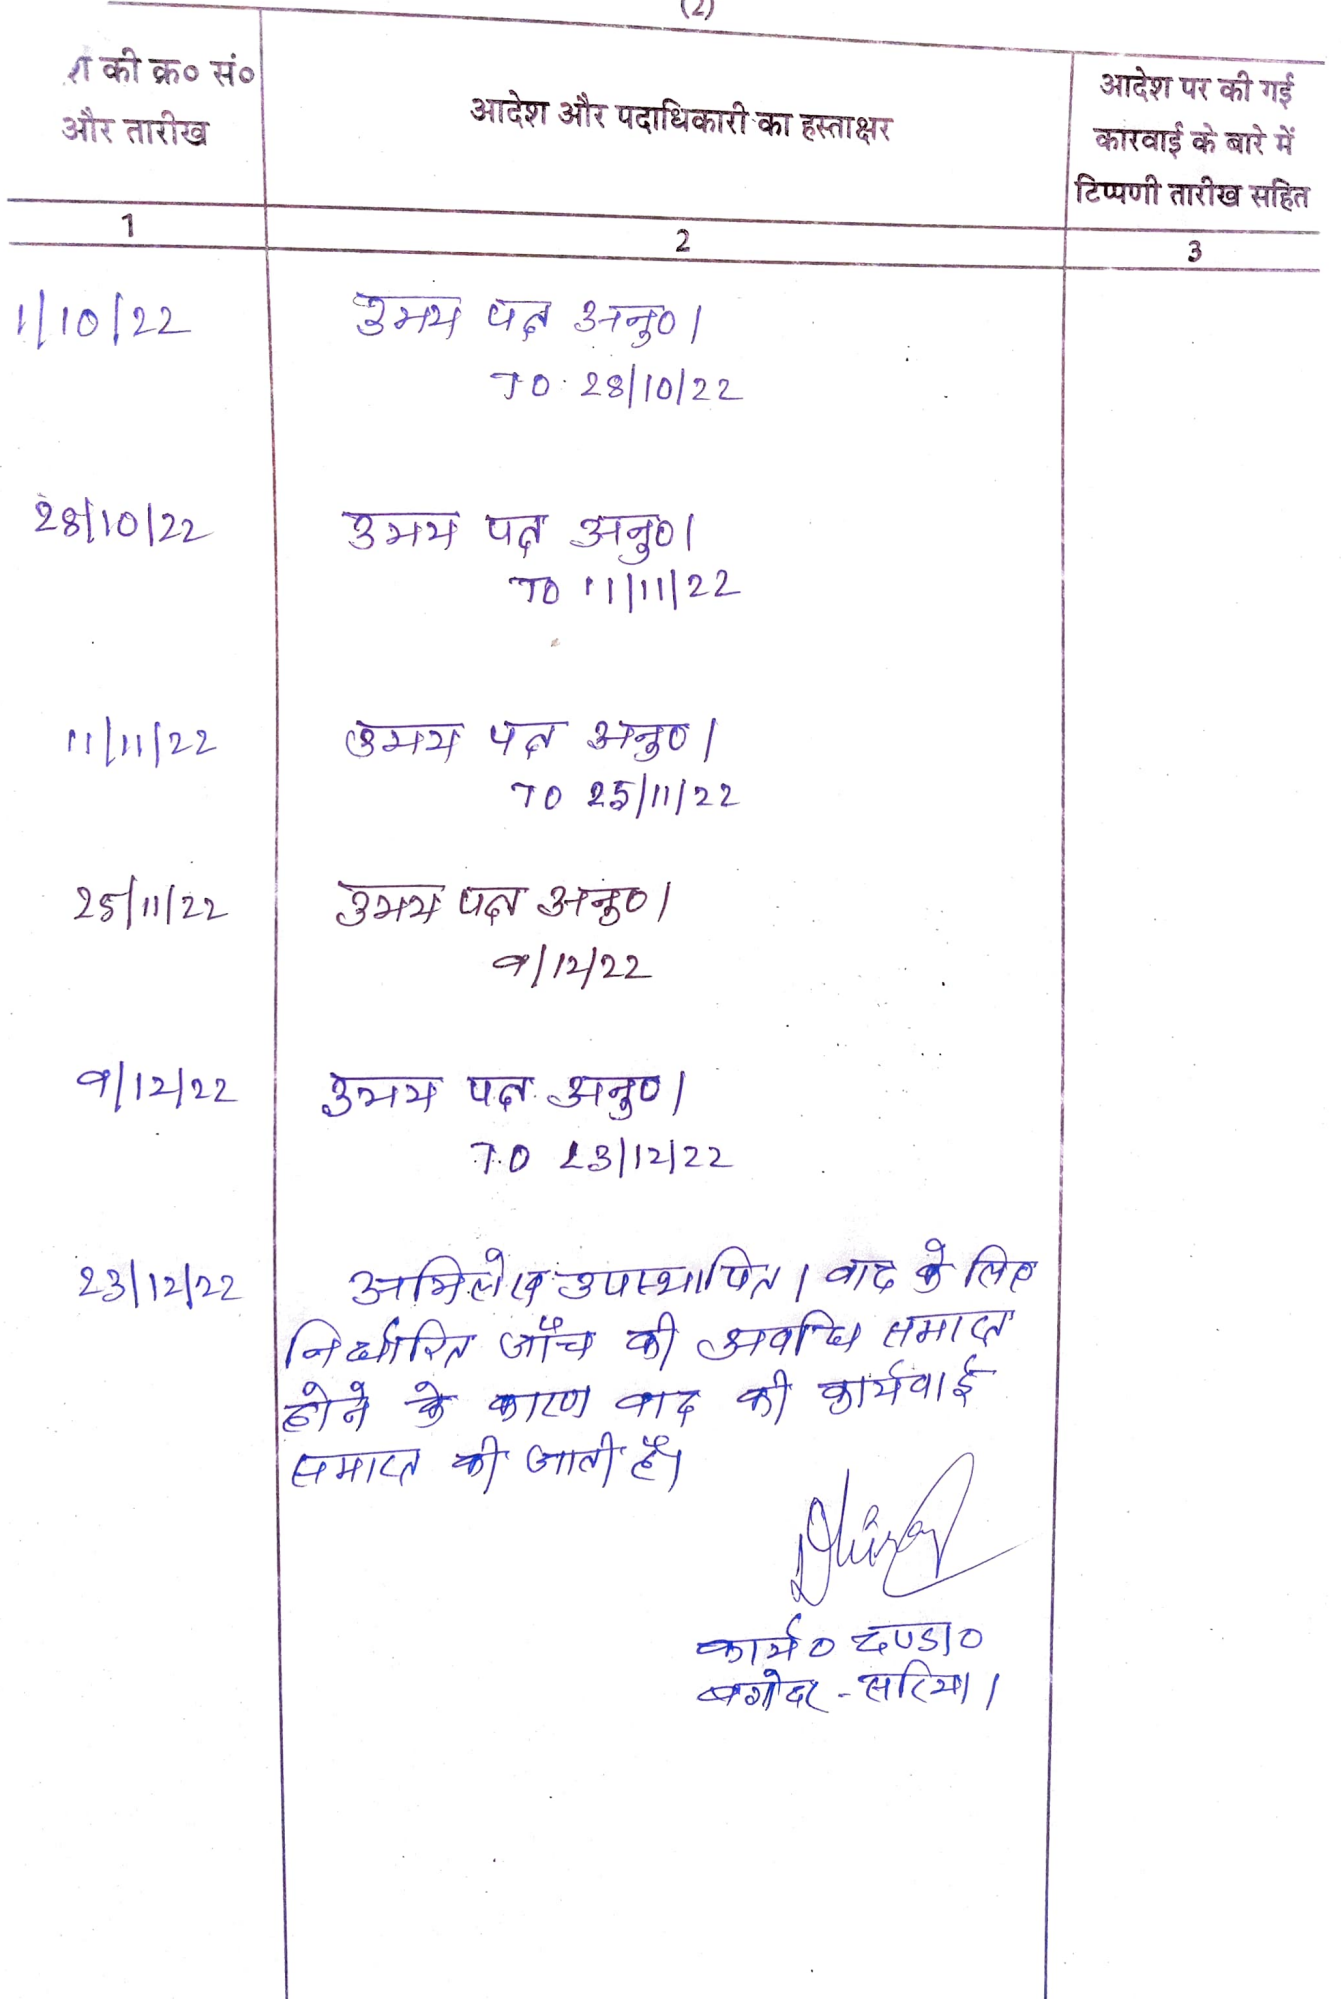 (2)
श की क्र० सं०
और तारीख
आदेश और पदाधिकारी का हस्ताक्षर
आदेश पर की गई
कारवाई के बारे में
टिप्पणी तारीख सहित
1
2
3
1/10/22 उभय पक्ष अनु०।
TO 28/10/22
28/10/22 उभय पक्ष अनु०।
TO 11/11/22
11/11/22 उभय पक्ष अनु०।
TO 25/11/22
25/11/22 उभय पक्ष अनु०।
9/12/22
9/12/22 उभय पक्ष अनु०।
T.O 23/12/22
23/12/22 अभिलेख उपस्थापित। वाद के लिए
निर्धारित जाँच की अवधि समाप्त
होने के कारण वाद की कार्यवाई
समाप्त की जाती है।
Dhiraj
कार्य० दण्डा०
बगोदर-सरिया।